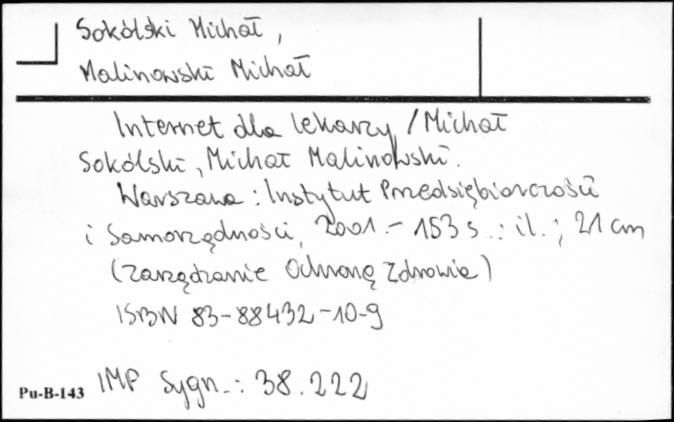 Sokólski Michał,
Malinowski Michał
Internet dla lekarzy / Michał
Sokólski, Michał Malinowski.
Warszawa : Instytut Przedsiębiorczości
i Samorządności, 2001. - 153 s. : il. ; 21 cm
(Zarządzanie Ochroną Zdrowia)
ISBN 83-88432-10-9
Pu-B-143 IMP Sygn. : 38.222